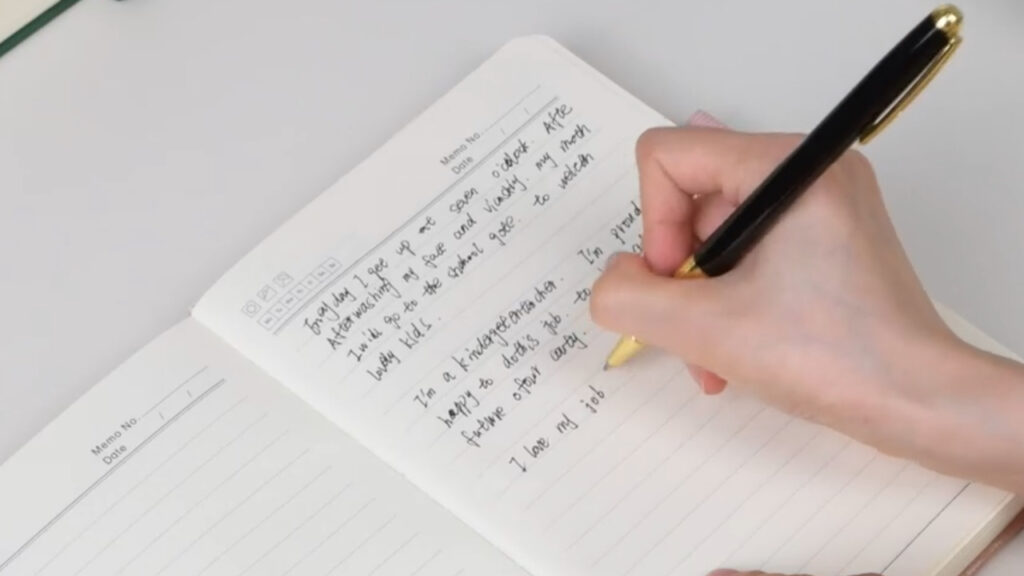 Memo No.
Date / /
Everyday I get up at seven o'clock. Afte
After washing my face and my moth
I will go to the school gate. to welcom
lovely kids.
I'm a kindergarten teacher. I'm proud
happy to do this job. to
future of our
I love my job
Memo No.
Date / /